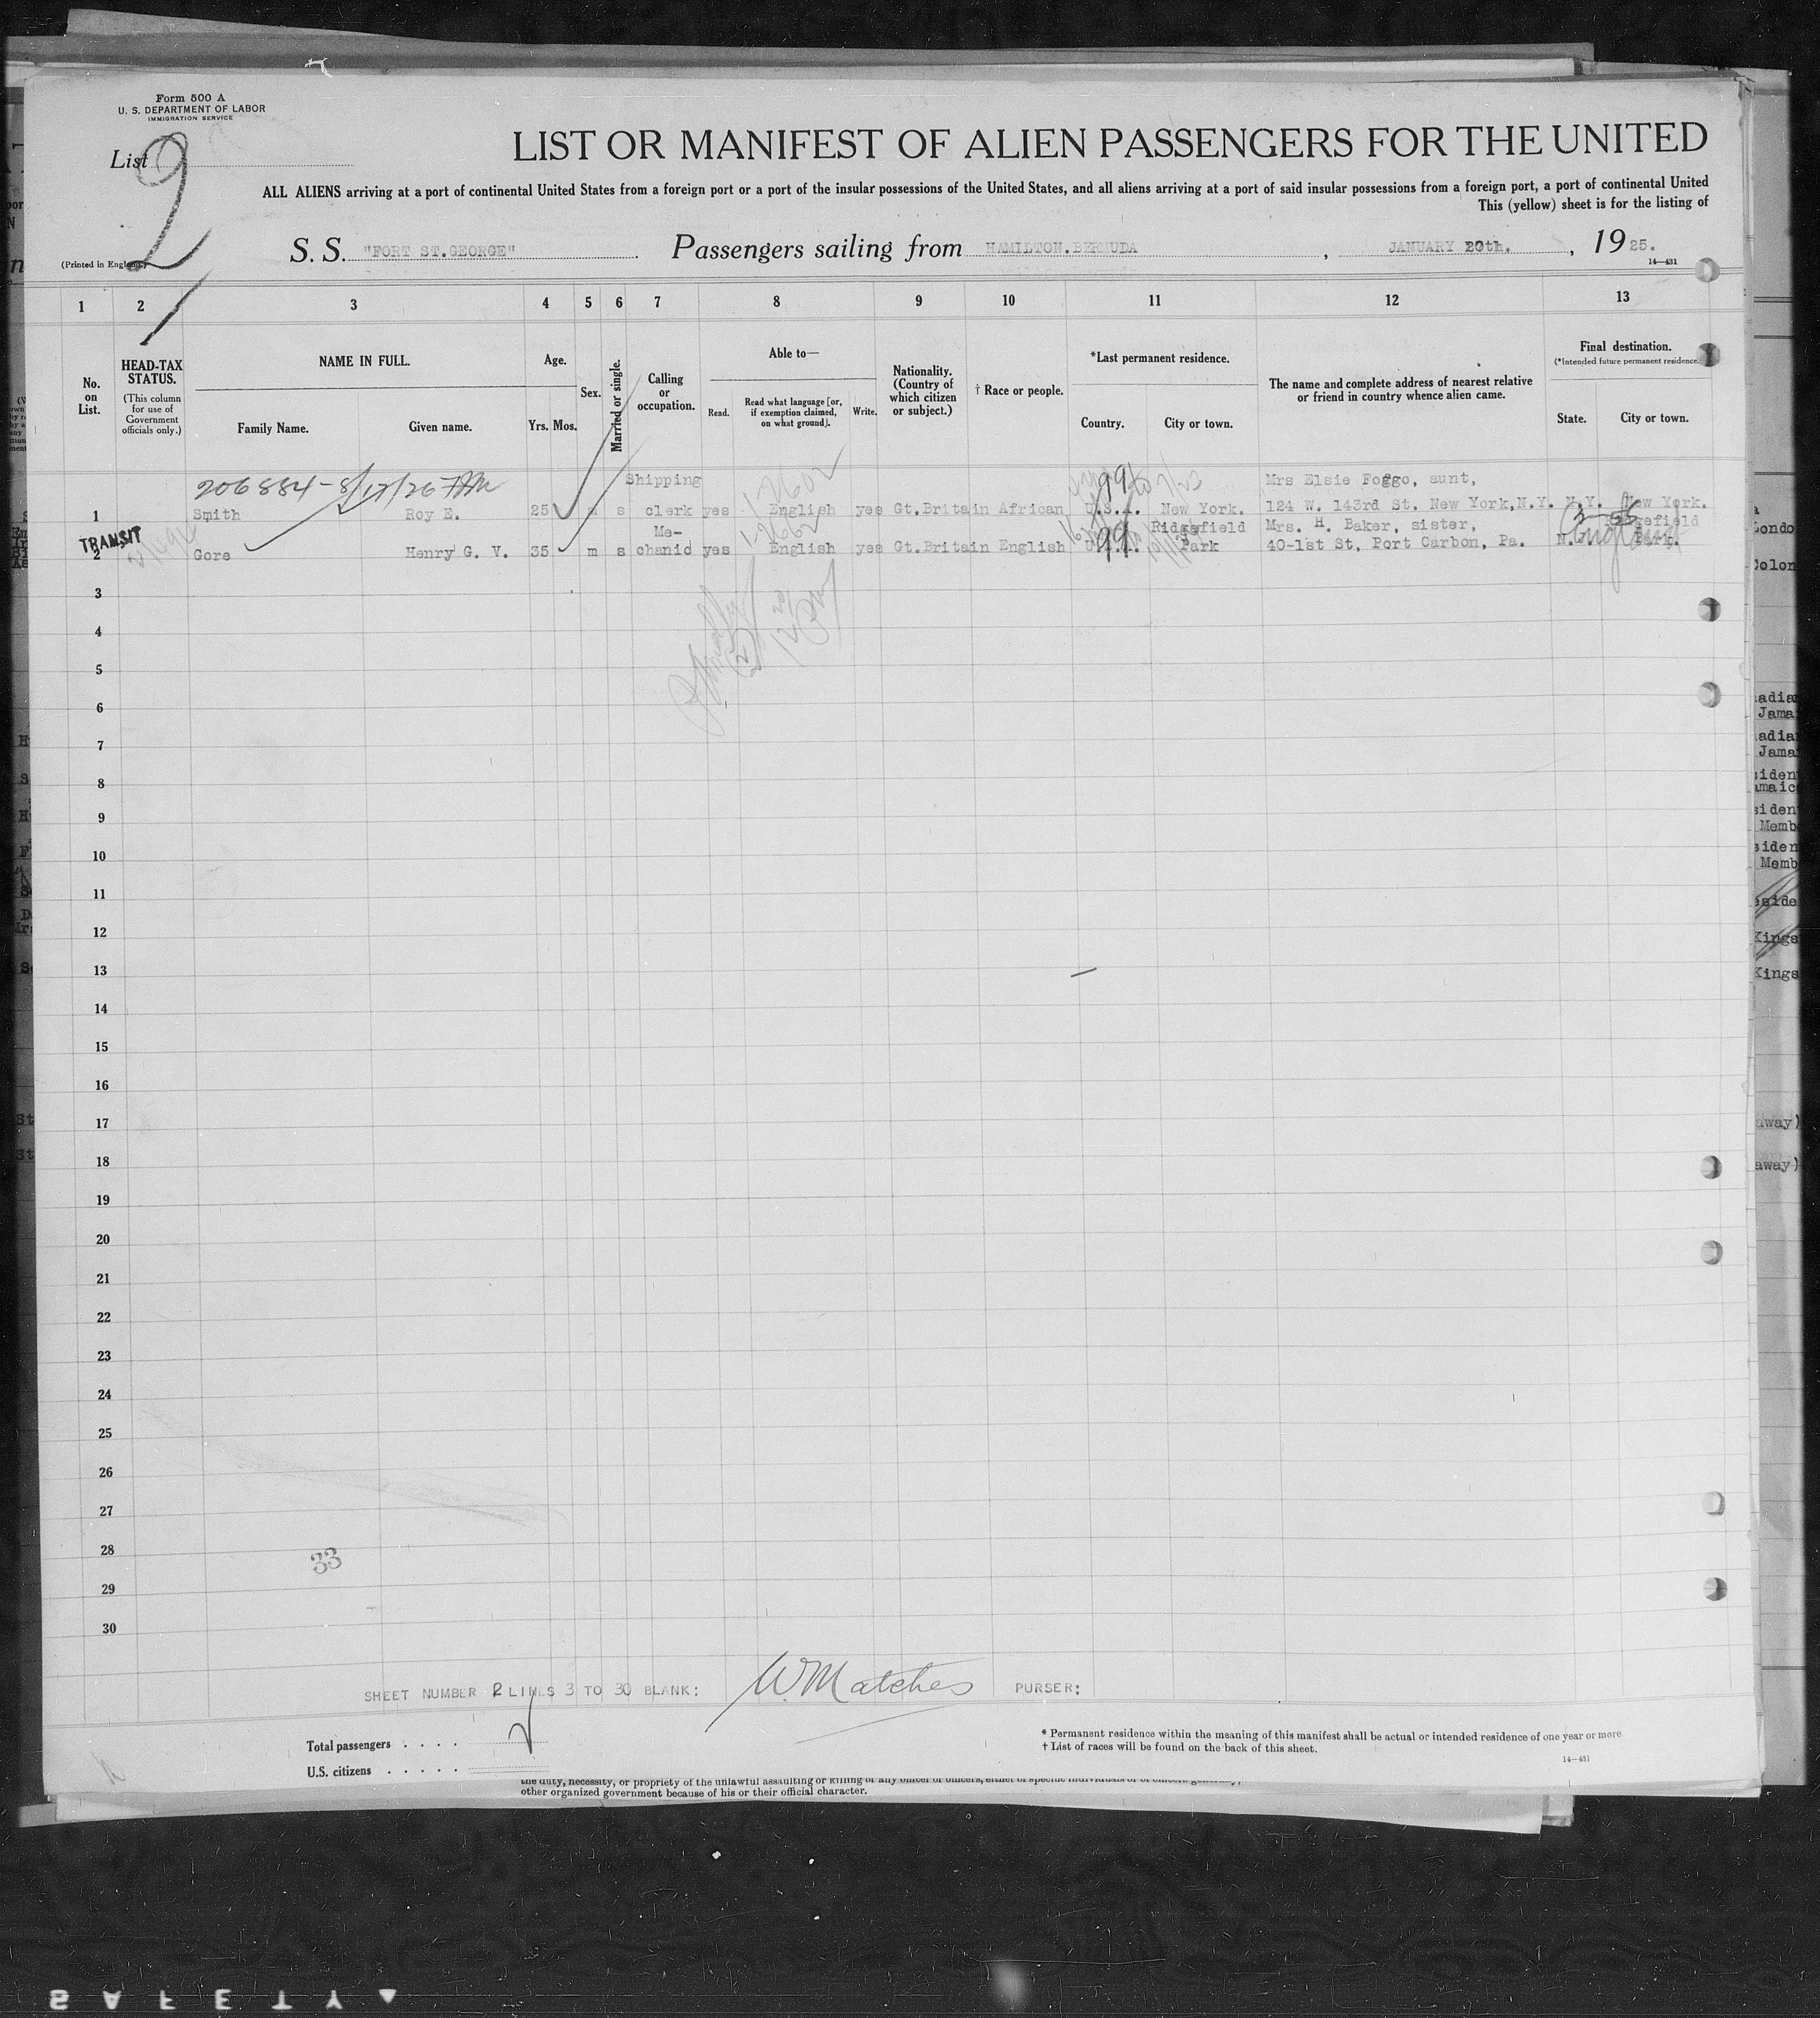 Form 500 A
U. S. DEPARTMENT OF LABOR
IMMIGRATION SERVICE
List 2
LIST OR MANIFEST OF ALIEN PASSENGERS FOR THE UNITED
ALL ALIENS arriving at a port of continental United States from a foreign port or a port of the insular possessions of the United States, and all aliens arriving at a port of said insular possessions from a foreign port, a port of continental United
This (yellow) sheet is for the listing of
(Printed in England.)
S. S. "FORT ST.GEORGE" Passengers sailing from HAMILTON.BERMUDA , JANUARY 20th. , 1925.
14—431
1 2 3 4 5 6 7 8 9 10 11 12 13
No. on List.
HEAD-TAX STATUS.
(This column for use of Government officials only.)
NAME IN FULL.
Family Name. Given name.
Age.
Yrs. Mos.
Sex.
Married or single.
Calling or occupation.
Able to—
Read. Read what language [or, if exemption claimed, on what ground]. Write.
Nationality. (Country of which citizen or subject.)
† Race or people.
*Last permanent residence.
Country. City or town.
The name and complete address of nearest relative or friend in country whence alien came.
Final destination.
(*Intended future permanent residence.)
State. City or town.
206884-8/17/26
Shipping Mrs Elsie Foggo, aunt,
1 Smith Roy E. 25 s clerk yes English yes Gt.Britain African U.S.A. New York. 124 W. 143rd St. New York,N.Y. N.Y. New York.
TRANSIT Me- 99 Ridgefield Mrs. H. Baker, sister, Ridgefield
2 Gore Henry G. V. 35 m s chanic yes English yes Gt.Britain English Park 40-1st St, Port Carbon, Pa. N.J. Park.
England
3
4
5
6
7
8
9
10
11
12
13
14
15
16
17
18
19
20
21
22
23
24
25
26
27
28
33
29
30
SHEET NUMBER 2 LINES 3 TO 30 BLANK: W. Matches PURSER:
Total passengers . . . .
U.S. citizens . . . . .
* Permanent residence within the meaning of this manifest shall be actual or intended residence of one year or more
† List of races will be found on the back of this sheet.
14—431
the duty, necessity, or propriety of the unlawful assaulting or killing of any officer or officers, either of specific individuals or of officers generally,
other organized government because of his or their official character.
SAFETY